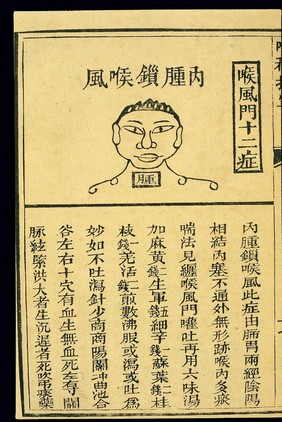 喉風門十二症
內腫鎖喉風
腫
內腫鎖喉風此症由肺胃兩經陰陽
相結內塞不通外無形跡喉內多痰
喘法見纏喉風門嚾吐再用六味湯
加麻黃錢生軍錢五細辛錢蘇葉錢二桂
枝錢羌活錢煎數沸服或瀉或吐爲
妙如不吐瀉針少商商陽關冲曲池合
谷左右十穴有血生無血死若尋關
脉絃緊洪大者生沉遲者死吹弔痰藥